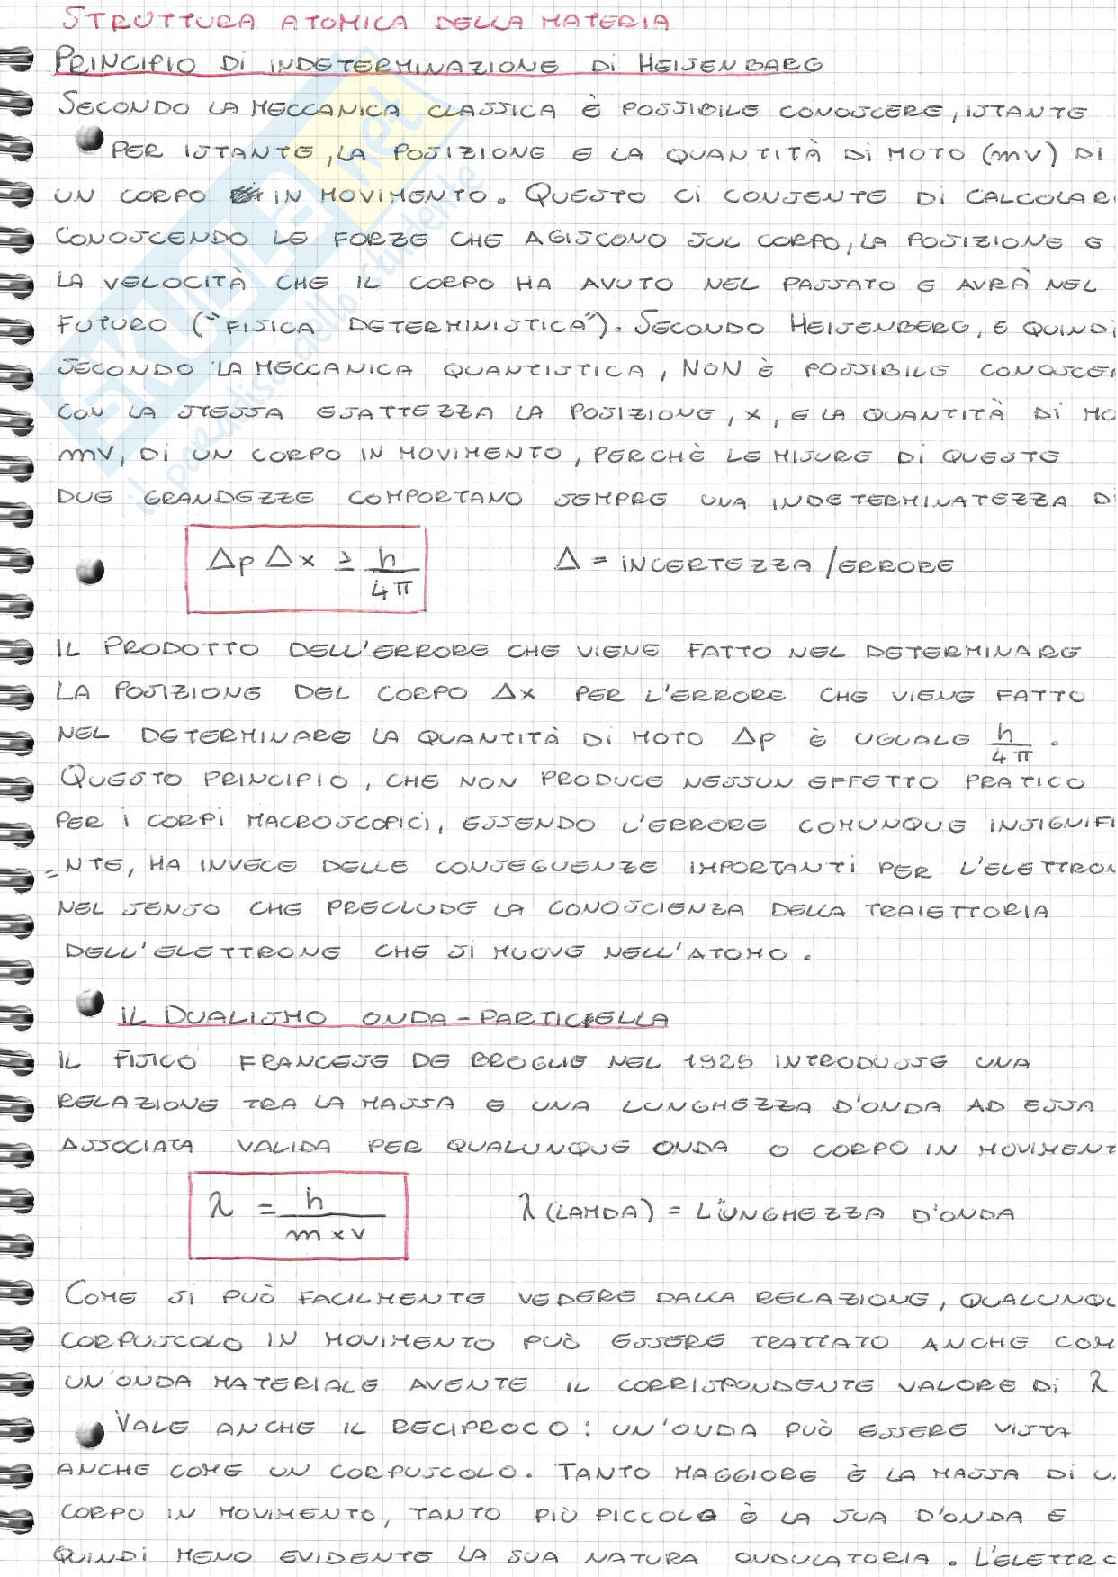 STRUTTURA ATOMICA DELLA MATERIA
PRINCIPIO DI INDETERMINAZIONE DI HEISENBARG
SECONDO LA MECCANICA CLASSICA È POSSIBILE CONOSCERE, ISTANTE
PER ISTANTE, LA POSIZIONE E LA QUANTITÀ DI MOTO (mv) DI
UN CORPO IN MOVIMENTO. QUESTO CI CONSENTE DI CALCOLAR
CONOSCENDO LE FORZE CHE AGISCONO SUL CORPO, LA POSIZIONE E
LA VELOCITÀ CHE IL CORPO HA AVUTO NEL PASSATO E AVRÀ NEL
FUTURO ("FISICA DETERMINISTICA"). SECONDO HEISENBERG, E QUINDI
SECONDO LA MECCANICA QUANTISTICA, NON È POSSIBILE CONOSCER
CON LA STESSA ESATTEZZA LA POSIZIONE, x, E LA QUANTITÀ DI MO
mv, DI UN CORPO IN MOVIMENTO, PERCHÈ LE MISURE DI QUESTE
DUE GRANDEZZE COMPORTANO SEMPRE UNA INDETERMINATEZZA DI
Δp Δx ≥ h/4π Δ = INCERTEZZA/ERRORE
IL PRODOTTO DELL'ERRORE CHE VIENE FATTO NEL DETERMINARE
LA POSIZIONE DEL CORPO Δx PER L'ERRORE CHE VIENE FATTO
NEL DETERMINARE LA QUANTITÀ DI MOTO Δp È UGUALE h/4π.
QUESTO PRINCIPIO, CHE NON PRODUCE NESSUN EFFETTO PRATICO
PER I CORPI MACROSCOPICI, ESSENDO L'ERRORE COMUNQUE INSIGNIFI
=NTE, HA INVECE DELLE CONSEGUENZE IMPORTANTI PER L'ELETTRON
NEL SENSO CHE PRECLUDE LA CONOSCIENZA DELLA TRAIETTORIA
DELL'ELETTRONE CHE SI MUOVE NELL'ATOMO.
IL DUALISMO ONDA-PARTICELLA
IL FISICO FRANCESE DE BROGLIE NEL 1925 INTRODUSSE UNA
RELAZIONE TRA LA MASSA E UNA LUNGHEZZA D'ONDA AD ESSA
ASSOCIATA VALIDA PER QUALUNQUE ONDA O CORPO IN MOVIMENT
λ = h/m x v λ (LAMDA) = LUNGHEZZA D'ONDA
COME SI PUÒ FACILMENTE VEDERE DALLA RELAZIONE, QUALUNQU
CORPUSCOLO IN MOVIMENTO PUÒ ESSERE TRATTATO ANCHE COM
UN'ONDA MATERIALE AVENTE IL CORRISPONDENTE VALORE DI λ
VALE ANCHE IL RECIPROCO: UN'ONDA PUÒ ESSERE VISTA
ANCHE COME UN CORPUSCOLO. TANTO MAGGIORE È LA MASSA DI U
CORPO IN MOVIMENTO, TANTO PIÙ PICCOLA È LA SUA D'ONDA E
QUINDI MENO EVIDENTE LA SUA NATURA ONDULATORIA. L'ELETTRO
SKUOLA.net
il paradiso dello studente